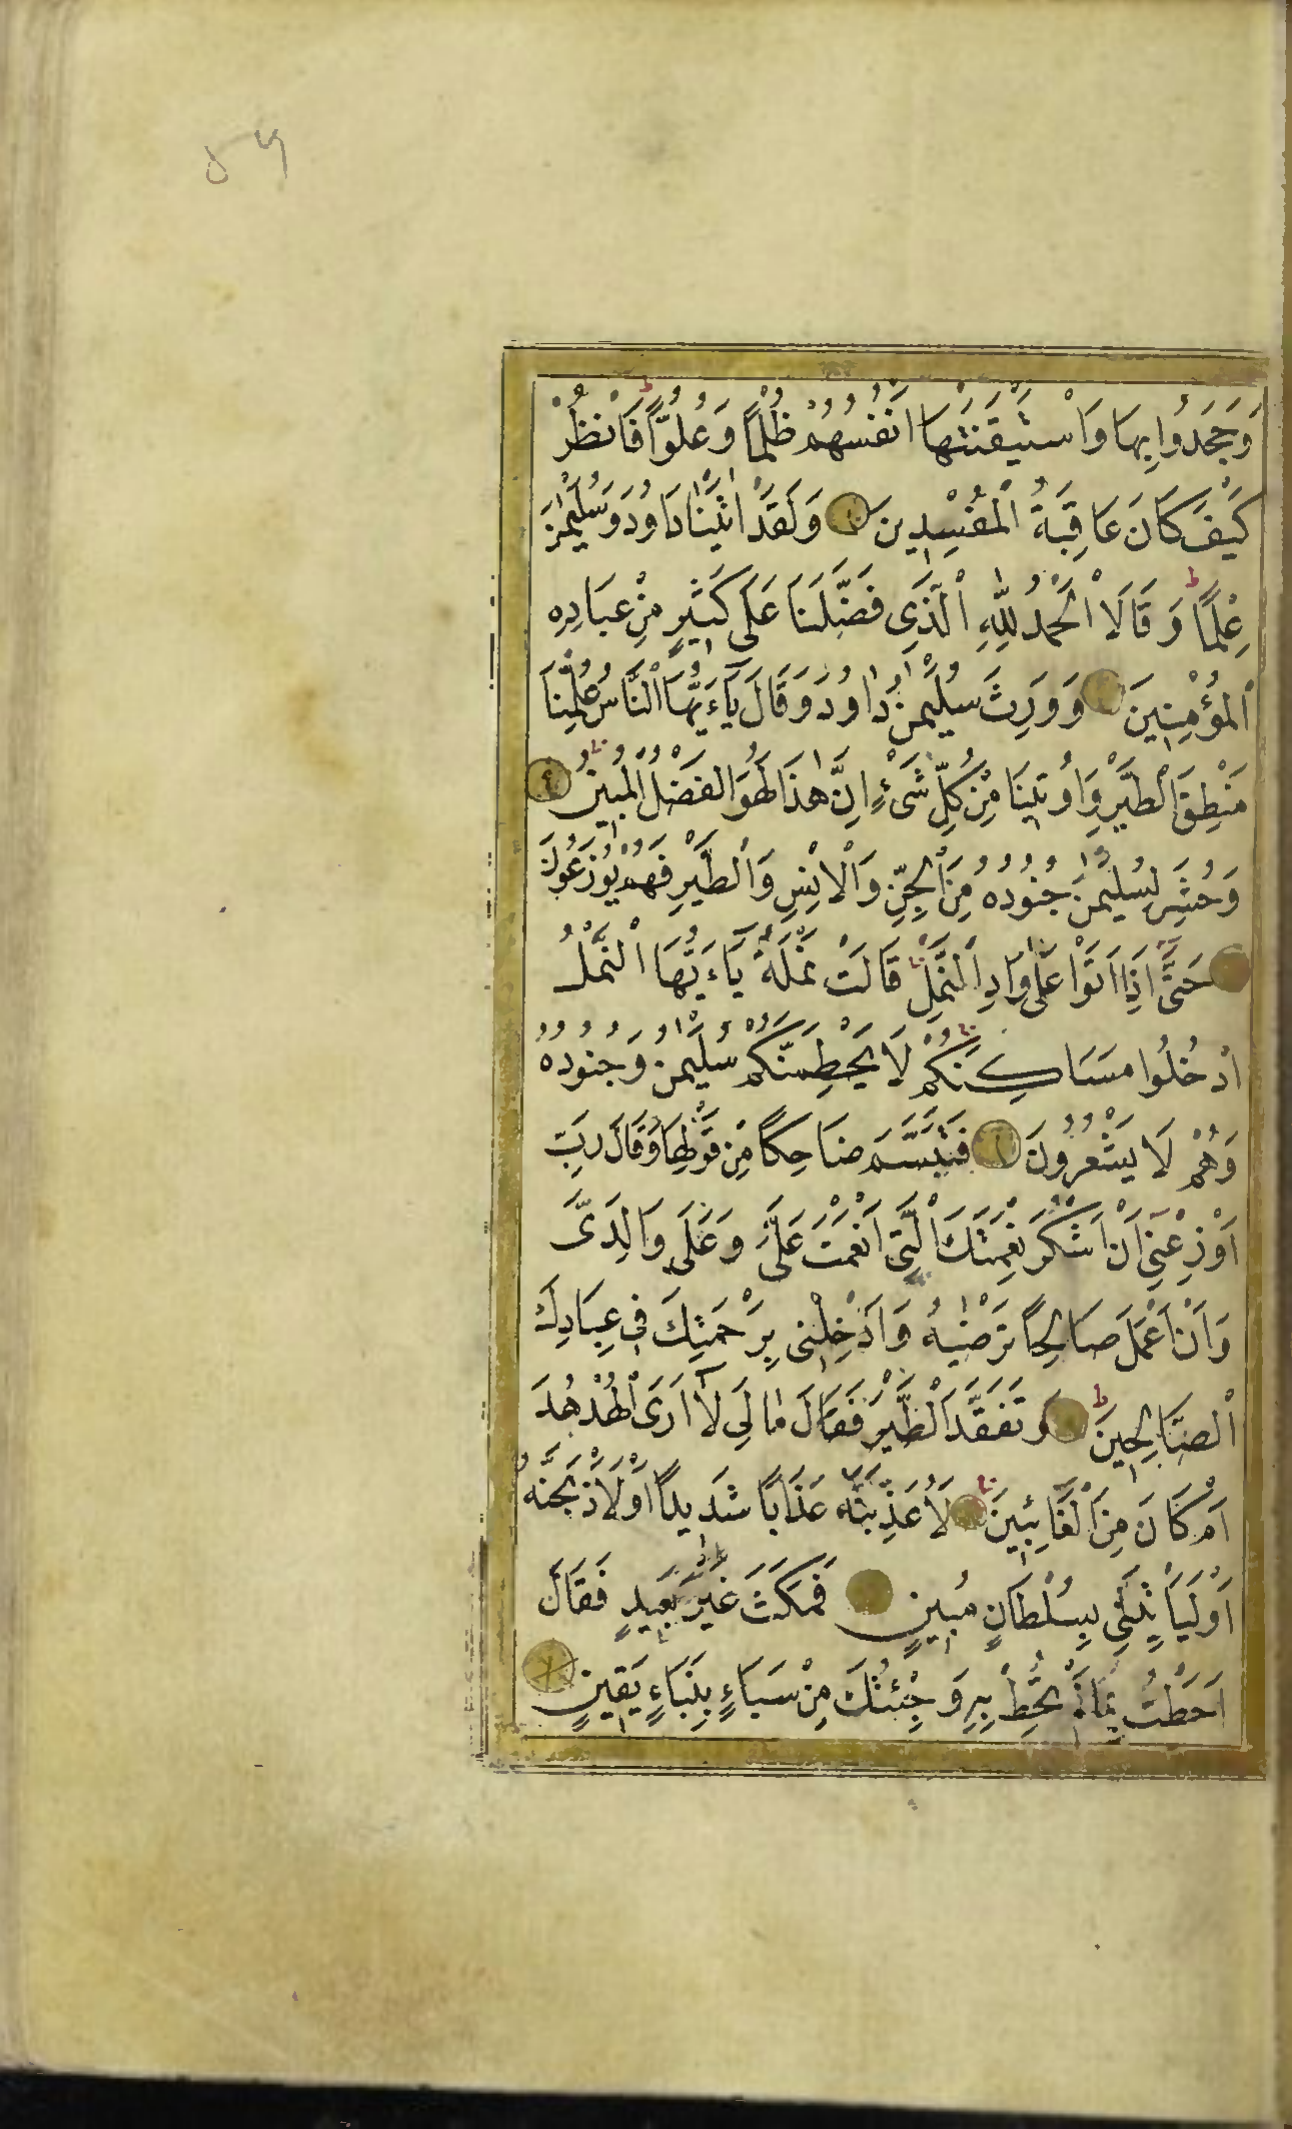 ٥٦
وَجَحَدُوا بِهَا وَاسْتَيْقَنَتْهَا اَنْفُسُهُمْ ظُلْمًا وَعُلُوًّا فَانْظُرْ
كَيْفَ كَانَ عَاقِبَةُ الْمُفْسِدِينَ وَلَقَدْ اٰتَيْنَا دَاوُدَ وَسُلَيْمٰنَ
عِلْمًا وَقَالَا الْحَمْدُ لِلّٰهِ الَّذِى فَضَّلَنَا عَلَى كَثِيرٍ مِنْ عِبَادِهِ
الْمُؤْمِنِينَ وَوَرِثَ سُلَيْمٰنُ دَاوُدَ وَقَالَ يَآءَيُّهَا النَّاسُ عُلِّمْنَا
مَنْطِقَ الطَّيْرِ وَاُوتِينَا مِنْ كُلِّ شَىْءٍ اِنَّ هٰذَا لَهُوَ الْفَضْلُ الْمُبِينُ
وَحُشِرَ لِسُلَيْمٰنَ جُنُودُهُ مِنَ الْجِنِّ وَالْاِنْسِ وَالطَّيْرِ فَهُمْ يُوزَعُونَ
حَتَّى اِذَا اَتَوْا عَلَى وَادِ النَّمْلِ قَالَتْ نَمْلَةٌ يَآءَيُّهَا النَّمْلُ
ادْخُلُوا مَسَاكِنَكُمْ لَا يَحْطِمَنَّكُمْ سُلَيْمٰنُ وَجُنُودُهُ
وَهُمْ لَا يَشْعُرُونَ فَتَبَسَّمَ ضَاحِكًا مِنْ قَوْلِهَا وَقَالَ رَبِّ
اَوْزِعْنِى اَنْ اَشْكُرَ نِعْمَتَكَ الَّتِى اَنْعَمْتَ عَلَىَّ وَعَلَى وَالِدَىَّ
وَاَنْ اَعْمَلَ صَالِحًا تَرْضٰيهُ وَاَدْخِلْنِى بِرَحْمَتِكَ فِى عِبَادِكَ
الصَّالِحِينَ وَتَفَقَّدَ الطَّيْرَ فَقَالَ مَا لِىَ لَآ اَرَى الْهُدْهُدَ
اَمْ كَانَ مِنَ الْغَائِبِينَ لَاُعَذِّبَنَّهُ عَذَابًا شَدِيدًا اَوْ لَاَذْبَحَنَّهُ
اَوْ لَيَاْتِيَنِّى بِسُلْطَانٍ مُبِينٍ فَمَكَثَ غَيْرَ بَعِيدٍ فَقَالَ
اَحَطْتُ بِمَا لَمْ تُحِطْ بِهِ وَجِئْتُكَ مِنْ سَبَاءٍ بِنَبَاءٍ يَقِينٍ